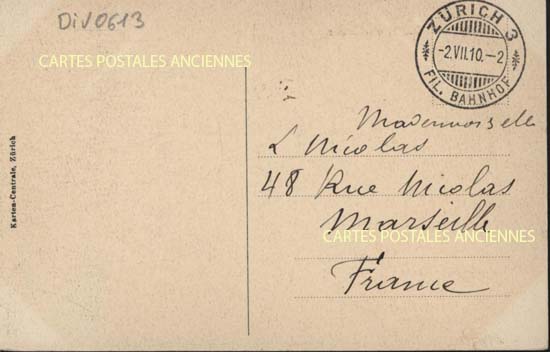 Div0613
CARTES POSTALES ANCIENNES
ZÜRICH 3
-2.VII.10.-2
FIL. BAHNHOF
Mademoiselle
L Nicolas
48 Rue Nicolas
Marseille
CARTES POSTALES ANCIENNES
France
Karten-Centrale, Zürich